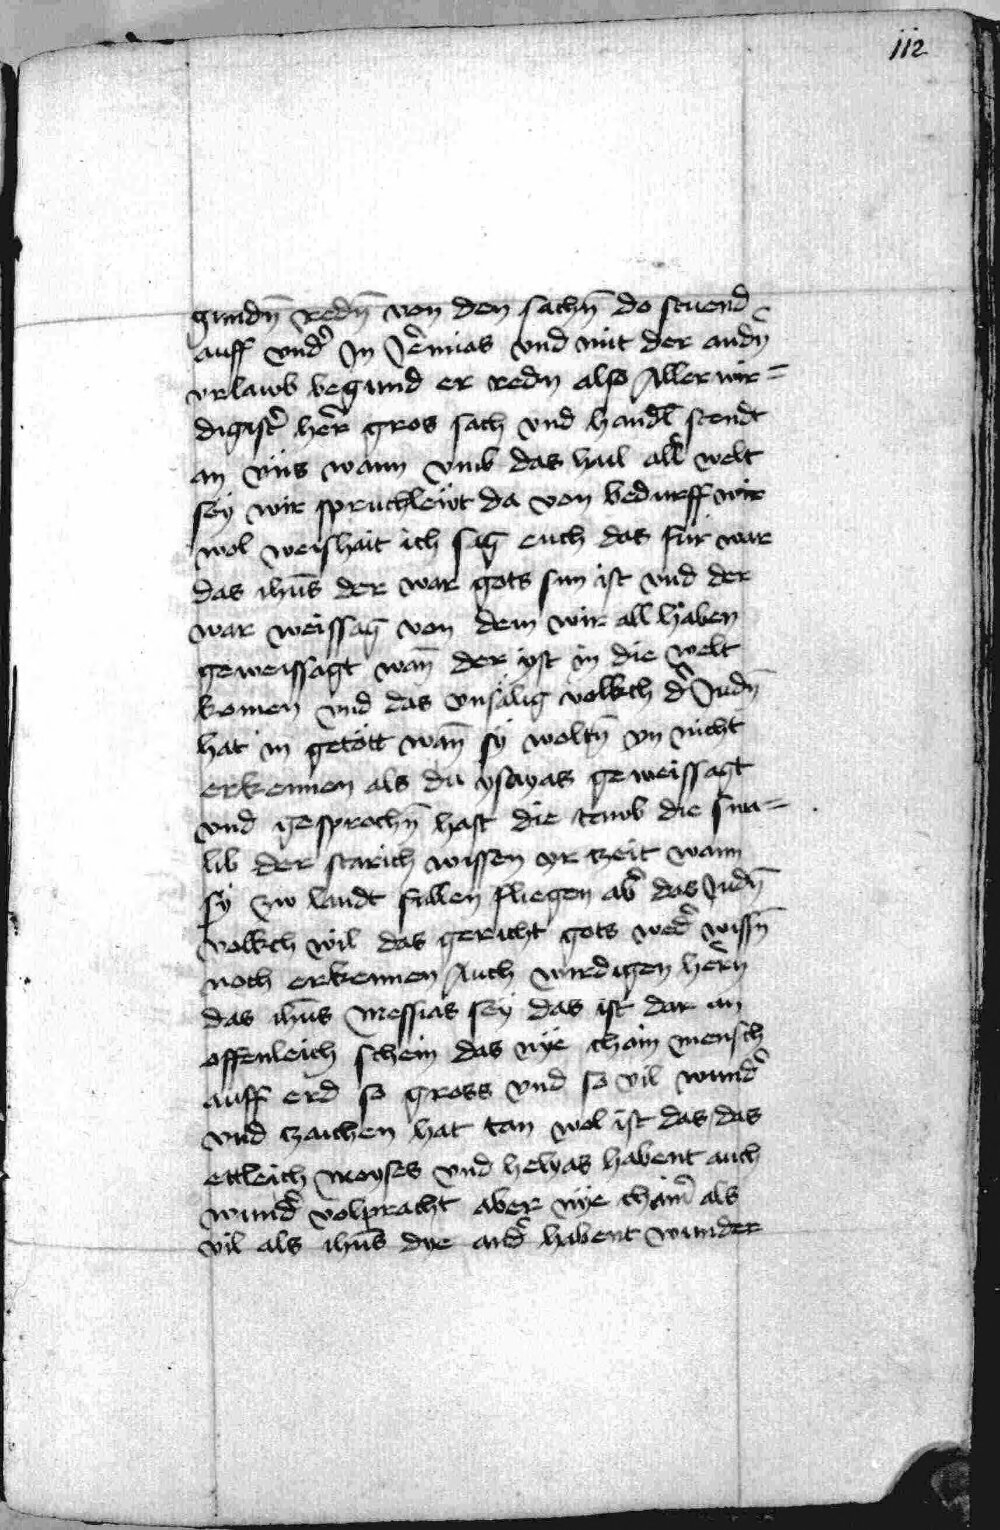 112
gundn̄ redn̄ von den sachn̄ do stuend
auff vnd' In Jeremias vnd mit der andn̄
vrlawb begund er redn also Aller wir=
digist' her' gros sach vnd handl stendt
an vns wann vmb das hail all' welt
sey wir spruchlewt da von bedurff wir
wol weishait ich sag euch das fur war
das ihūs der war gots sun ist vnd der
war weissag von dem wir all haben
geweissagt wan̄ der yst in die welt
komen vnd das vnsälig volkch d' Judn̄
hat in getött wan̄ sy woltn̄ yn nicht
erkennen als du ysayas geweissagt
vnd gesprochn̄ hast die tawb die swa=
lib der starich wissen yr zeit wann
sy zw landt sullen fliegen ab' das Judn̄
volkch wil das gericht gots wed' wissn̄
noch erkennen Auch wirdigen hern
das ihūs Messias sey das ist dar an
offenleich schein das nye chain mensch
auff erd so gross vnd so vil wund'
vnd zaichen hat tan wol ist das das
ettleich Moyses vnd helyas habent auch
wund' volpracht aber nye chain' als
vil als ihūs dye and' habent wunder